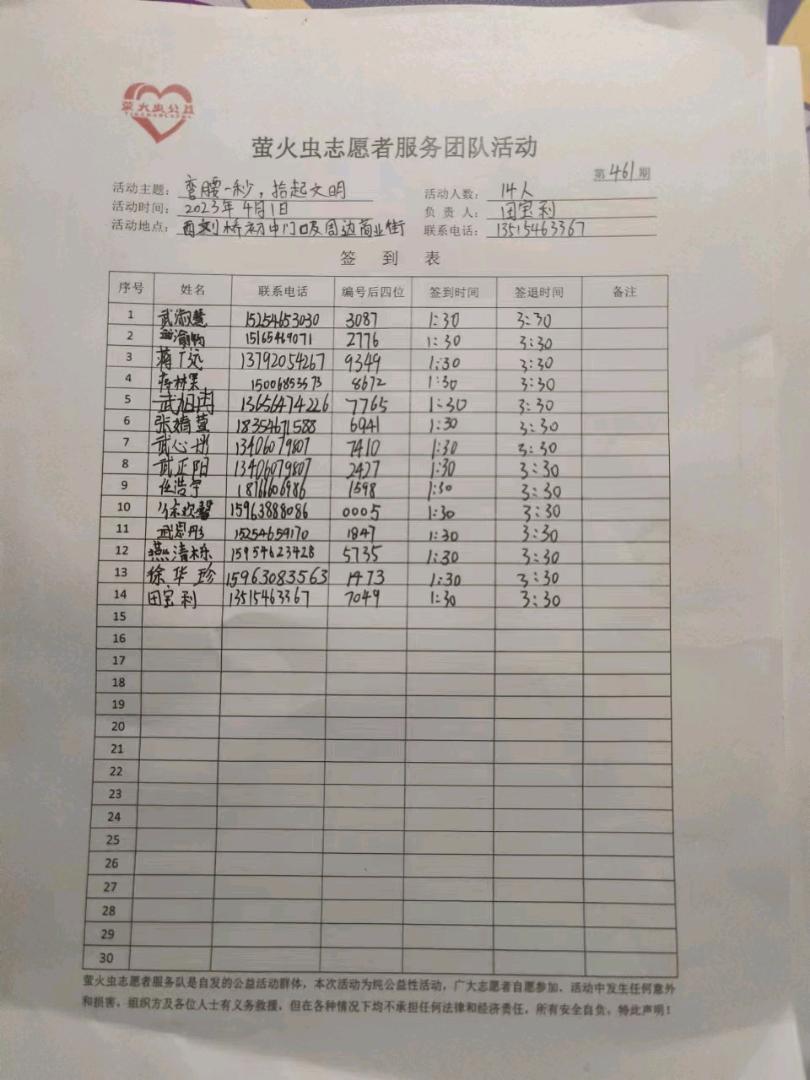 萤火虫公益
萤火虫志愿者服务团队活动
第461期
活动主题：弯腰一秒，拾起文明 活动人数：14人
活动时间：2023年4月1日 负责人：田宝利
活动地点：西刘桥初中门口及周边商业街 联系电话：13515463367
签到表
序号 姓名 联系电话 编号后四位 签到时间 签退时间 备注
1 武淑慧 15254653030 3087 1:30 3:30
2 15165469071 2776 1:30 3:30
3 蒋广远 13792054267 9349 1:30 3:30
4 15006855573 8672 1:30 3:30
5 武旭冉 13656474226 7765 1:30 3:30
6 张婧萱 18354671588 6941 1:30 3:30
7 武心彤 13406079807 7410 1:30 3:30
8 武正阳 13406079807 2427 1:30 3:30
9 任浩宇 18766606986 1598 1:30 3:30
10 徐欣馨 15963888086 0005 1:30 3:30
11 武恩彤 15254659170 1847 1:30 3:30
12 燕清栎 15954623428 5735 1:30 3:30
13 徐华珍 15963083563 1473 1:30 3:30
14 田宝利 13515463367 7049 1:30 3:30
15
16
17
18
19
20
21
22
23
24
25
26
27
28
29
30
萤火虫志愿者服务队是自发的公益活动群体，本次活动为纯公益性活动，广大志愿者自愿参加，活动中发生任何意外
和损害，组织方及各位人士有义务救援，但在各种情况下均不承担任何法律和经济责任，所有安全自负，特此声明！